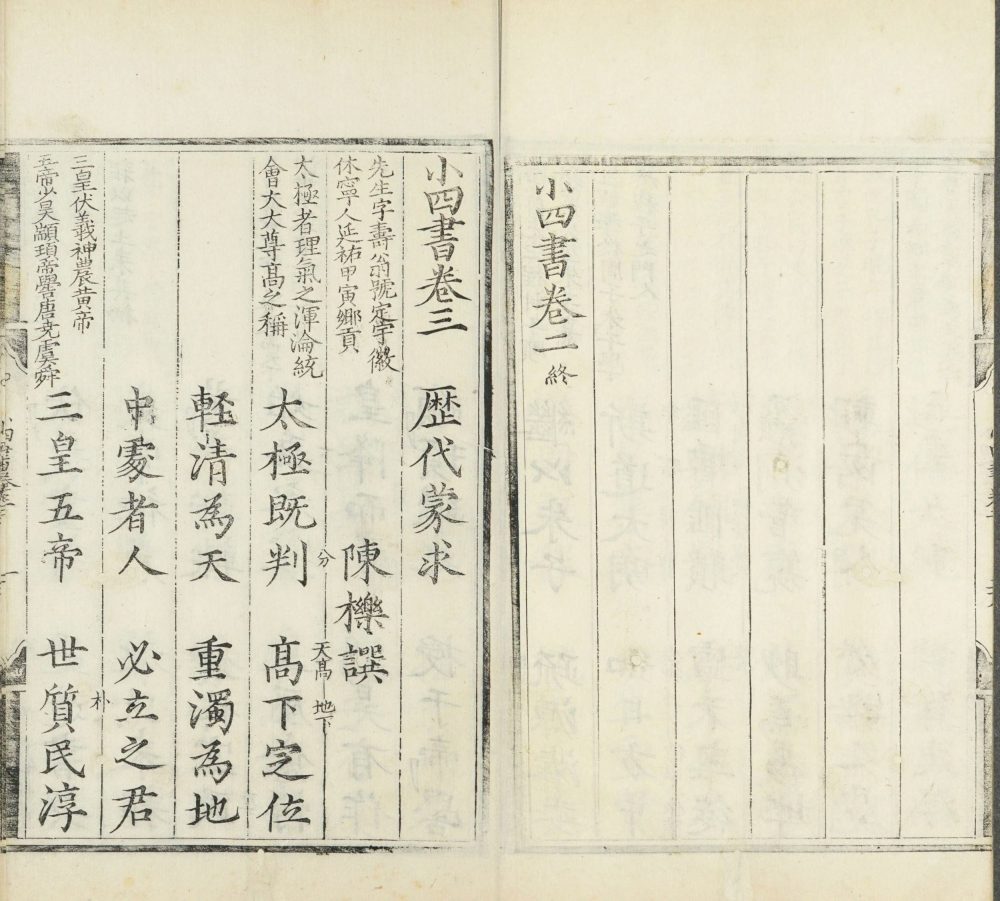 小四書卷二 終
小四書卷三 歷代蒙求
先生字壽翁號定宇徽
休寧人延祐甲寅鄉貢
陳櫟譔
太極者理氣之渾淪統
會大大尊髙之稱
太極既判 分
髙下定位 天髙 地下
軽清為天 重濁為地
中處者人 必立之君
三皇伏羲神農黄帝
五帝少昊顓頊帝嚳唐堯虞舜
三皇五帝 世質民淳 朴